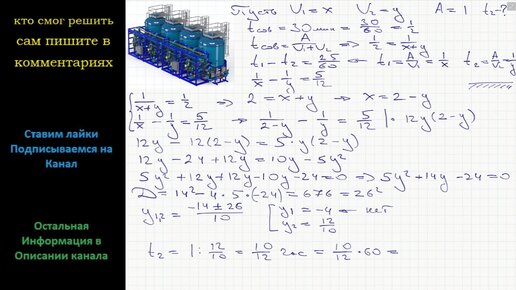 кто смог решить
сам пишите в
комментариях
Ставим лайки
Подписываемся на
Канал
Остальная
Информация в
Описании канала
Пусть V₁=x V₂=y A=1 t₂-?
tсов=30мин=30/60=1/2
tсов=A/(V₁+V₂) => 1/2=1/(x+y)
t₁-t₂=25/60 <- t₁=A/V₁=1/x t₂=A/V₂=1/y
1/x-1/y=5/12
{1/(x+y)=1/2 => 2=x+y => x=2-y
{1/x-1/y=5/12 => 1/(2-y)-1/y=5/12 |·12y(2-y)
12y-12(2-y)=5·y(2-y)
12y-24+12y=10y-5y²
5y²+12y+12y-10y-24=0 => 5y²+14y-24=0
D=14²-4·5·(-24)=676=26²
y₁,₂=(-14±26)/10 [y₁=-4 - нет
[y₂=12/10
t₂=1:12/10=10/12 час=10/12·60=